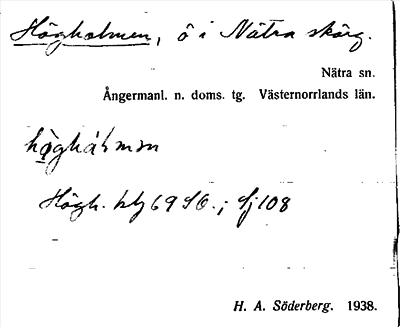 Högholmen, ö i Nätra skärg.
Nätra sn.
Ångermanl. n. doms. tg. Västernorrlands län.
Högh. 69 SO.; Sj 108
H. A. Söderberg. 1938.